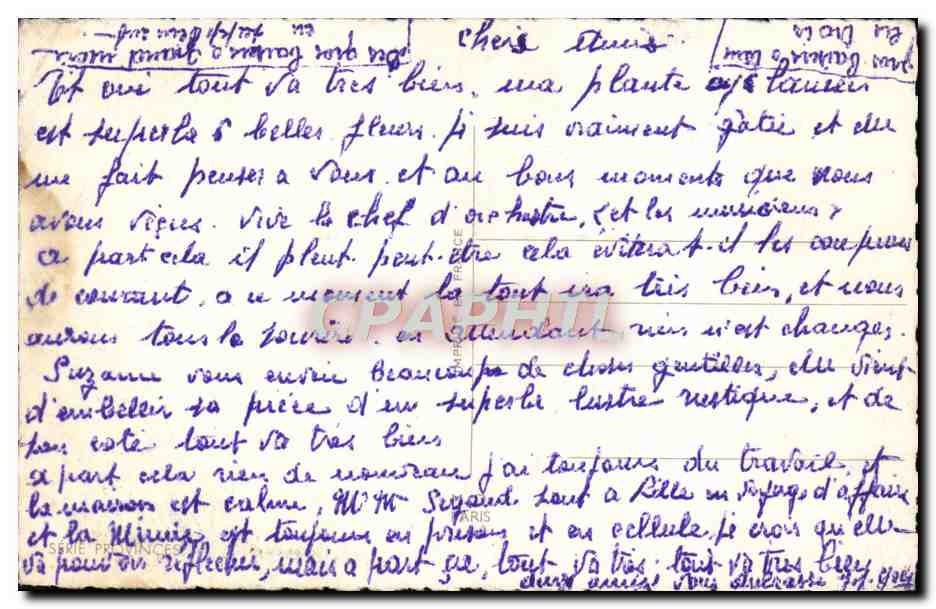 chers amis
Et oui tout va très bien, ma plante
est superbe 5 belles fleurs. je suis vraiment gâtée et elle
me fait penser a vous et au bons moments que nous
avons vécus. vive le chef d'orchestre, et les musiciens
a part cela il pleut peut-être cela évitera t-il les coupures
de courant, a ce moment la tout ira très bien, et nous
aurons tous le sourire. en attendant rien n'est changé.
Suzanne vous envoie beaucoup de choses gentilles, elle vient
d'embellir sa pièce d'un superbe lustre rustique, et de
son coté tout va très bien
a part cela rien de nouveau j'ai toujours du travail, et
la maison est calme, Mr Mme Segaud sont a Lille en voyage d'affaire
et la Mimie est toujours en prison et en cellule, je crois qu'elle
va pouvoir réfléchir, mais a part ça, tout va très tout va très bien
chers amis vous embrasse
gros baisers a tous
les trois
des gros baisers a grand mère
CPAPHIL
IMPRIMÉ EN FRANCE
PARIS
SÉRIE PROVINCES